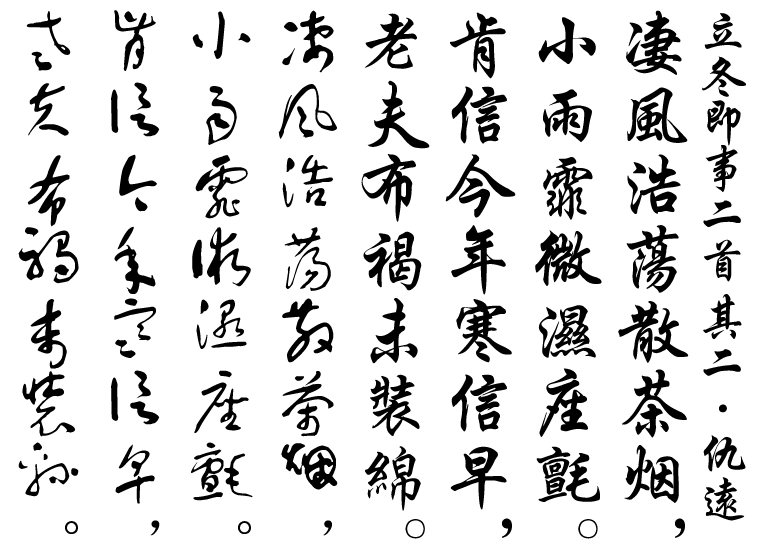 立冬即事二首其二·仇遠
淒風浩蕩散茶烟，
小雨霏微濕座氈。
肯信今年寒信早，
老夫布褐未裝綿。
淒風浩蕩散茶烟，
小雨霏微濕座氈。
肯信今年寒信早，
老夫布褐未裝綿。